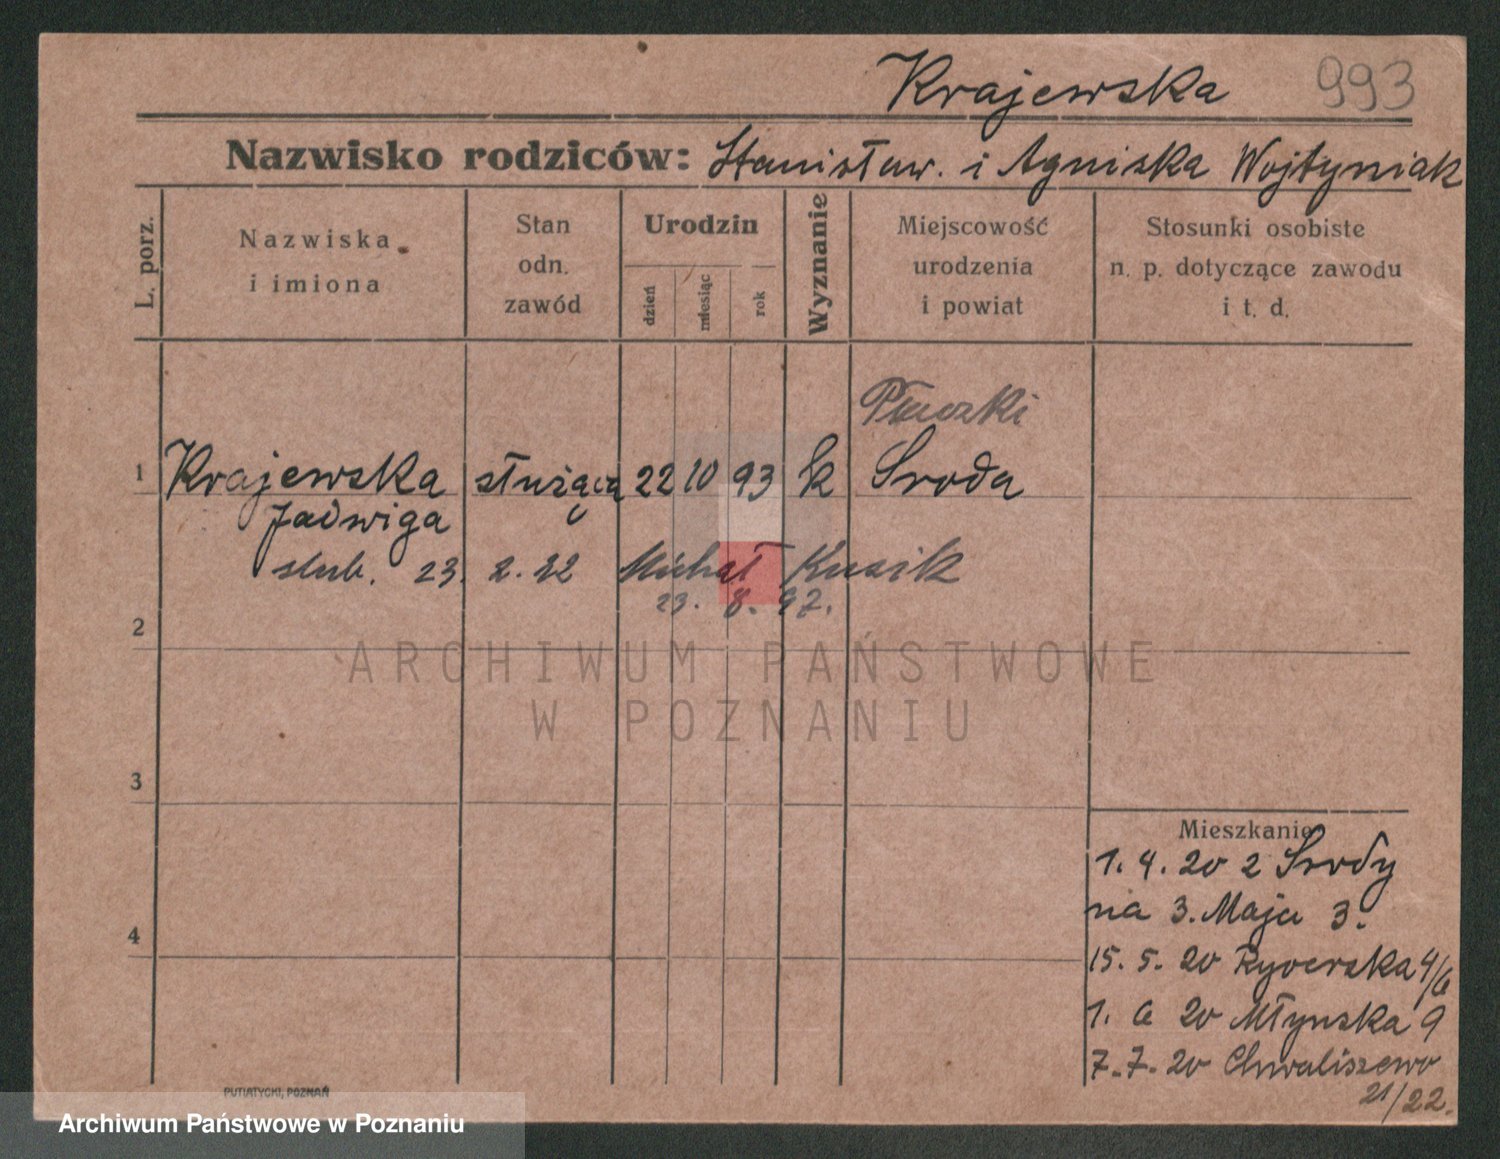 Krajewska 993
Nazwisko rodziców: Stanisław. i Agniska Wojtyniak
L. porz.
Nazwiska
i imiona
Stan
odn.
zawód
Urodzin
dzień
miesiąc
rok
Wyznanie
Miejscowość
urodzenia
i powiat
Stosunki osobiste
n. p. dotyczące zawodu
i t. d.
1 Krajewska służąca 22 10 93 k Sroda
Jadwiga
slub. 23. 2. 22 Michał Kusik
23. 8. 97.
2
ARCHIWUM PAŃSTWOWE
W POZNANIU
3
Mieszkanie
1. 4. 20 z Srody
na 3. Maja 3.
4
15. 5. 20 Rycerska 4/6
1. 6 20 Młynska 9
7. 7. 20 Chwaliszewo
21/22.
PUTIATYCKI, POZNAŃ
Archiwum Państwowe w Poznaniu